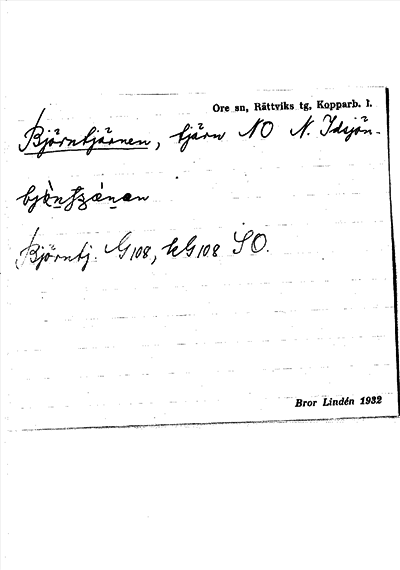 Ore sn, Rättviks tg, Kopparb. l.
Björntjärnen, tjärn NO N. Idsjön.
Björntj. G108, kG108 SO.
Bror Lindén 1932